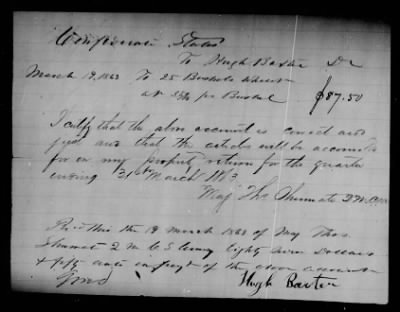 Confederate States
To Hugh Baxter Dr
March 19, 1863 To 25 Bushels Wheat
at 3 50/100 per Bushel $87.50
I certify that the above account is correct and
just and that the articles will be accounted
for on my property return for the quarter
ending 31st March 1863
Maj Thos Shumate Q M
Rec'd this the 19 March 1863 of Maj Thos
Shumate Q M C S Army Eighty Seven Dollars
& fifty cents in full of the above account
Hugh Baxter